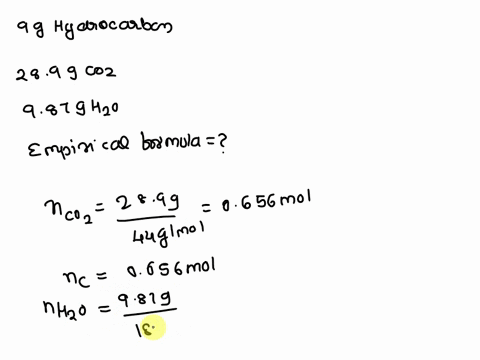 9g Hydrocarbon
28.9g CO2
9.87g H2O
Empirical formula = ?
nCO2 = 28.9g / 44g/mol = 0.656 mol
nC = 0.656 mol
nH2O = 9.87g / 18.